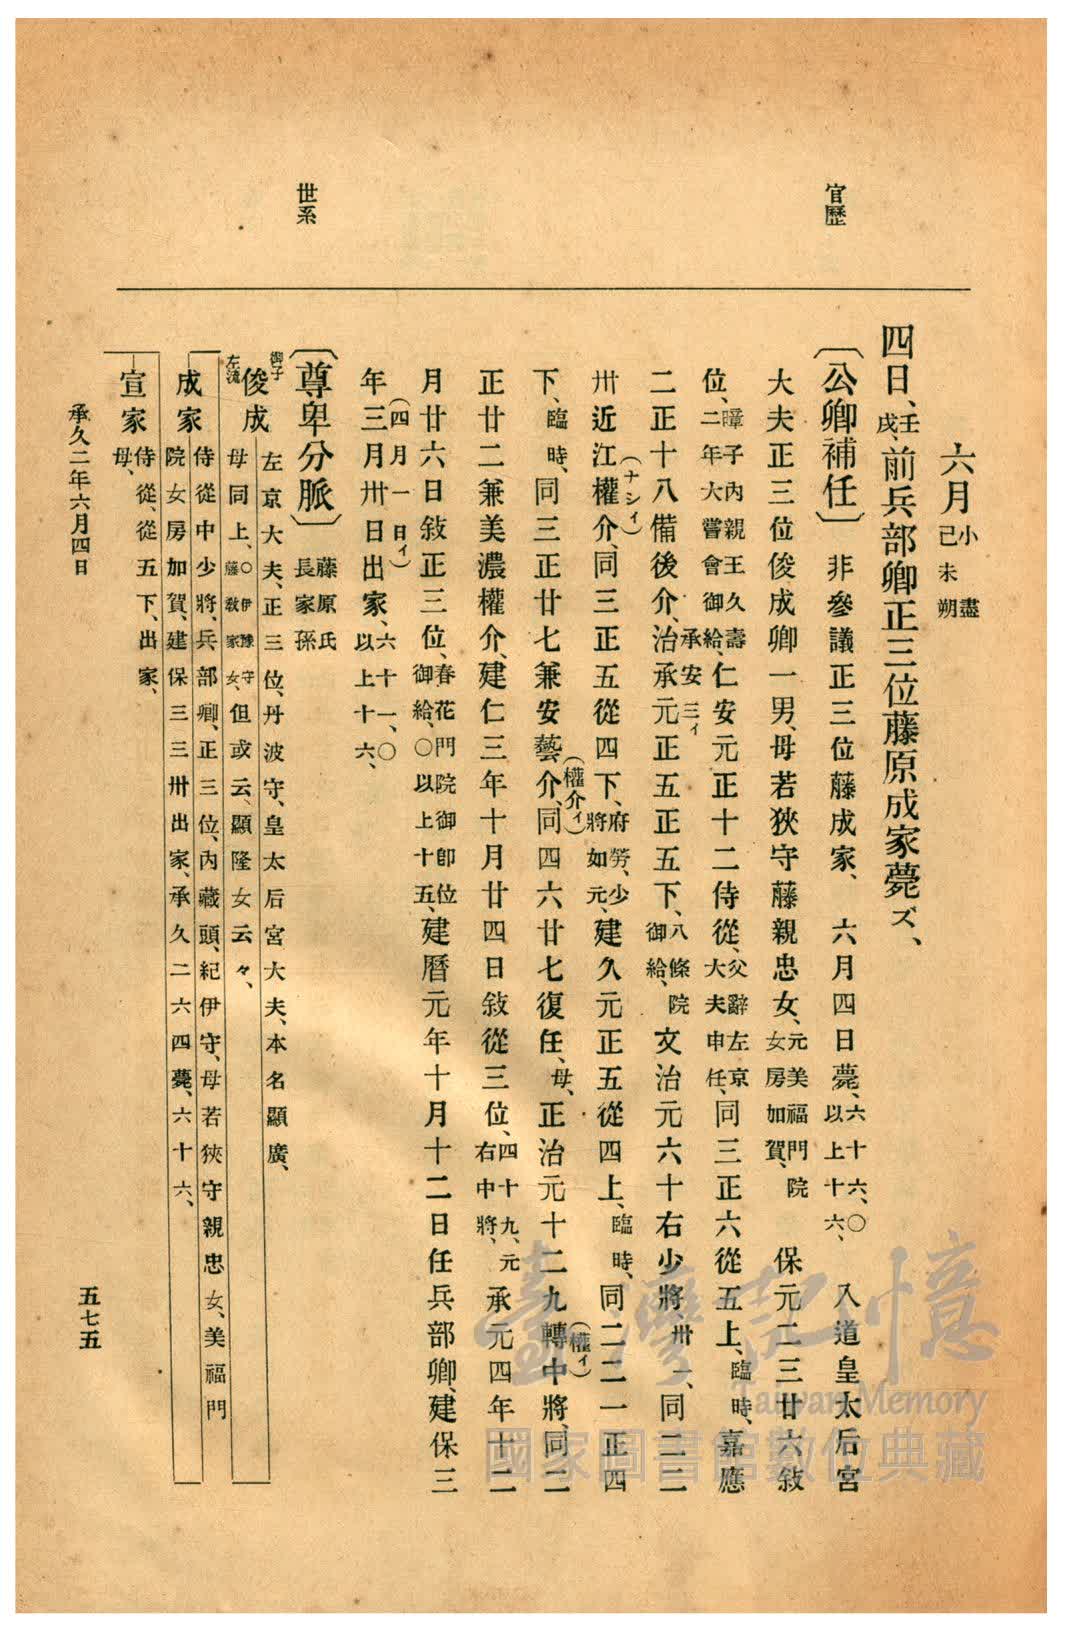 官歷
世系
六月 小盡 己未朔
四日、壬戌、前兵部卿正三位藤原成家薨ズ、
〔公卿補任〕 非參議正三位藤成家、 六月四日薨、六十六、〇以上十六、 入道皇太后宮
大夫正三位俊成卿一男、母若狹守藤親忠女、元美福門院女房加賀、 保元二三廿六敍
位、暲子內親王久壽二年大嘗會御給、承安三ィ 仁安元正十二侍從、父辭左京大夫申任、同三正六從五上、臨時、嘉應
二正十八備後介、治承元正五正五下、八條院御給、文治元六十右少將、卅一、同二二
卅近江權介、(ナシィ)同三正五從四下、府勞、少將如元、建久元正五從四上、臨時、同二二一正四
下、臨時、同三正廿七兼安藝介、(權介ィ)同四六廿七復任、母、正治元十二九轉中將、(權ィ)同二
正廿二兼美濃權介、建仁三年十月廿四日敍從三位、四十九、元右中將、承元四年十二
月廿六日敍正三位、春花門院御卽位御給、〇以上十五、建曆元年十月十二日任兵部卿、建保三
年三月卅日出家、(四月一日ィ)六十一、〇以上十六、
〔尊卑分脈〕 藤原氏長家孫
御子左流
俊成 左京大夫、正三位、丹波守、皇太后宮大夫、本名顯廣、
母同上、〇伊豫守藤敦家女、但或云、顯隆女云々、
成家 侍從中少將、兵部卿、正三位、內藏頭、紀伊守、母若狹守親忠女、美福門
院女房加賀、建保三三卅出家、承久二六四薨、六十六、
宣家 侍從、從五下、出家、
母、
承久二年六月四日
五七五
臺灣記憶
Taiwan Memory
國家圖書館數位典藏